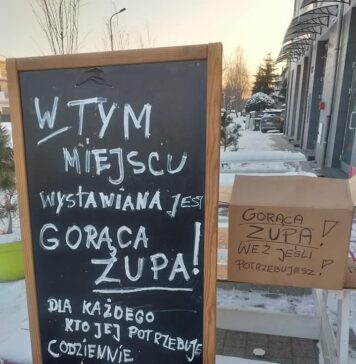 W TYM
MIEJSCU
WYSTAWIANA JEST
GORĄCA
ZUPA!
DLA KAŻDEGO
KTO JEJ POTRZEBUJE
CODZIENNIE
GORĄCA
ZUPA!
WEŹ JEŚLI
POTRZEBUJESZ!